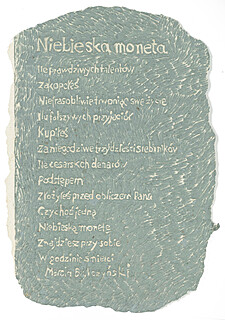 Niebieska moneta
Ile prawdziwych talentów
Zakopałeś
Nie frasobliwie trwoniąc swe życie
Ilu fałszywych przyjaciół
Kupiłeś
Za niegodziwe trzydzieści srebrników
Ile cesarskich denarów
Podstępem
Złożyłeś przed obliczem Pana
Czy choć jedną
Niebieską monetę
Znajdziesz przy sobie
W godzinie śmierci
Marcin